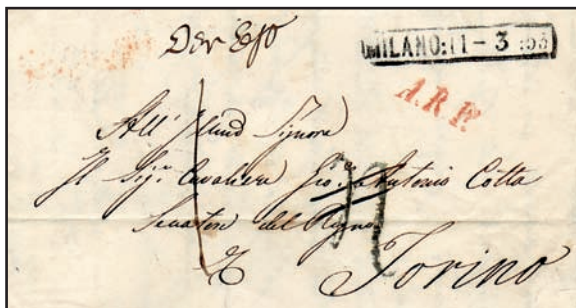 MILANO:11-3:53
A.R.Pº.
All' Illmo Signore
Il Sigr. Cavaliere Gio: Antonio Cotta
Senatore del Regno
Torino